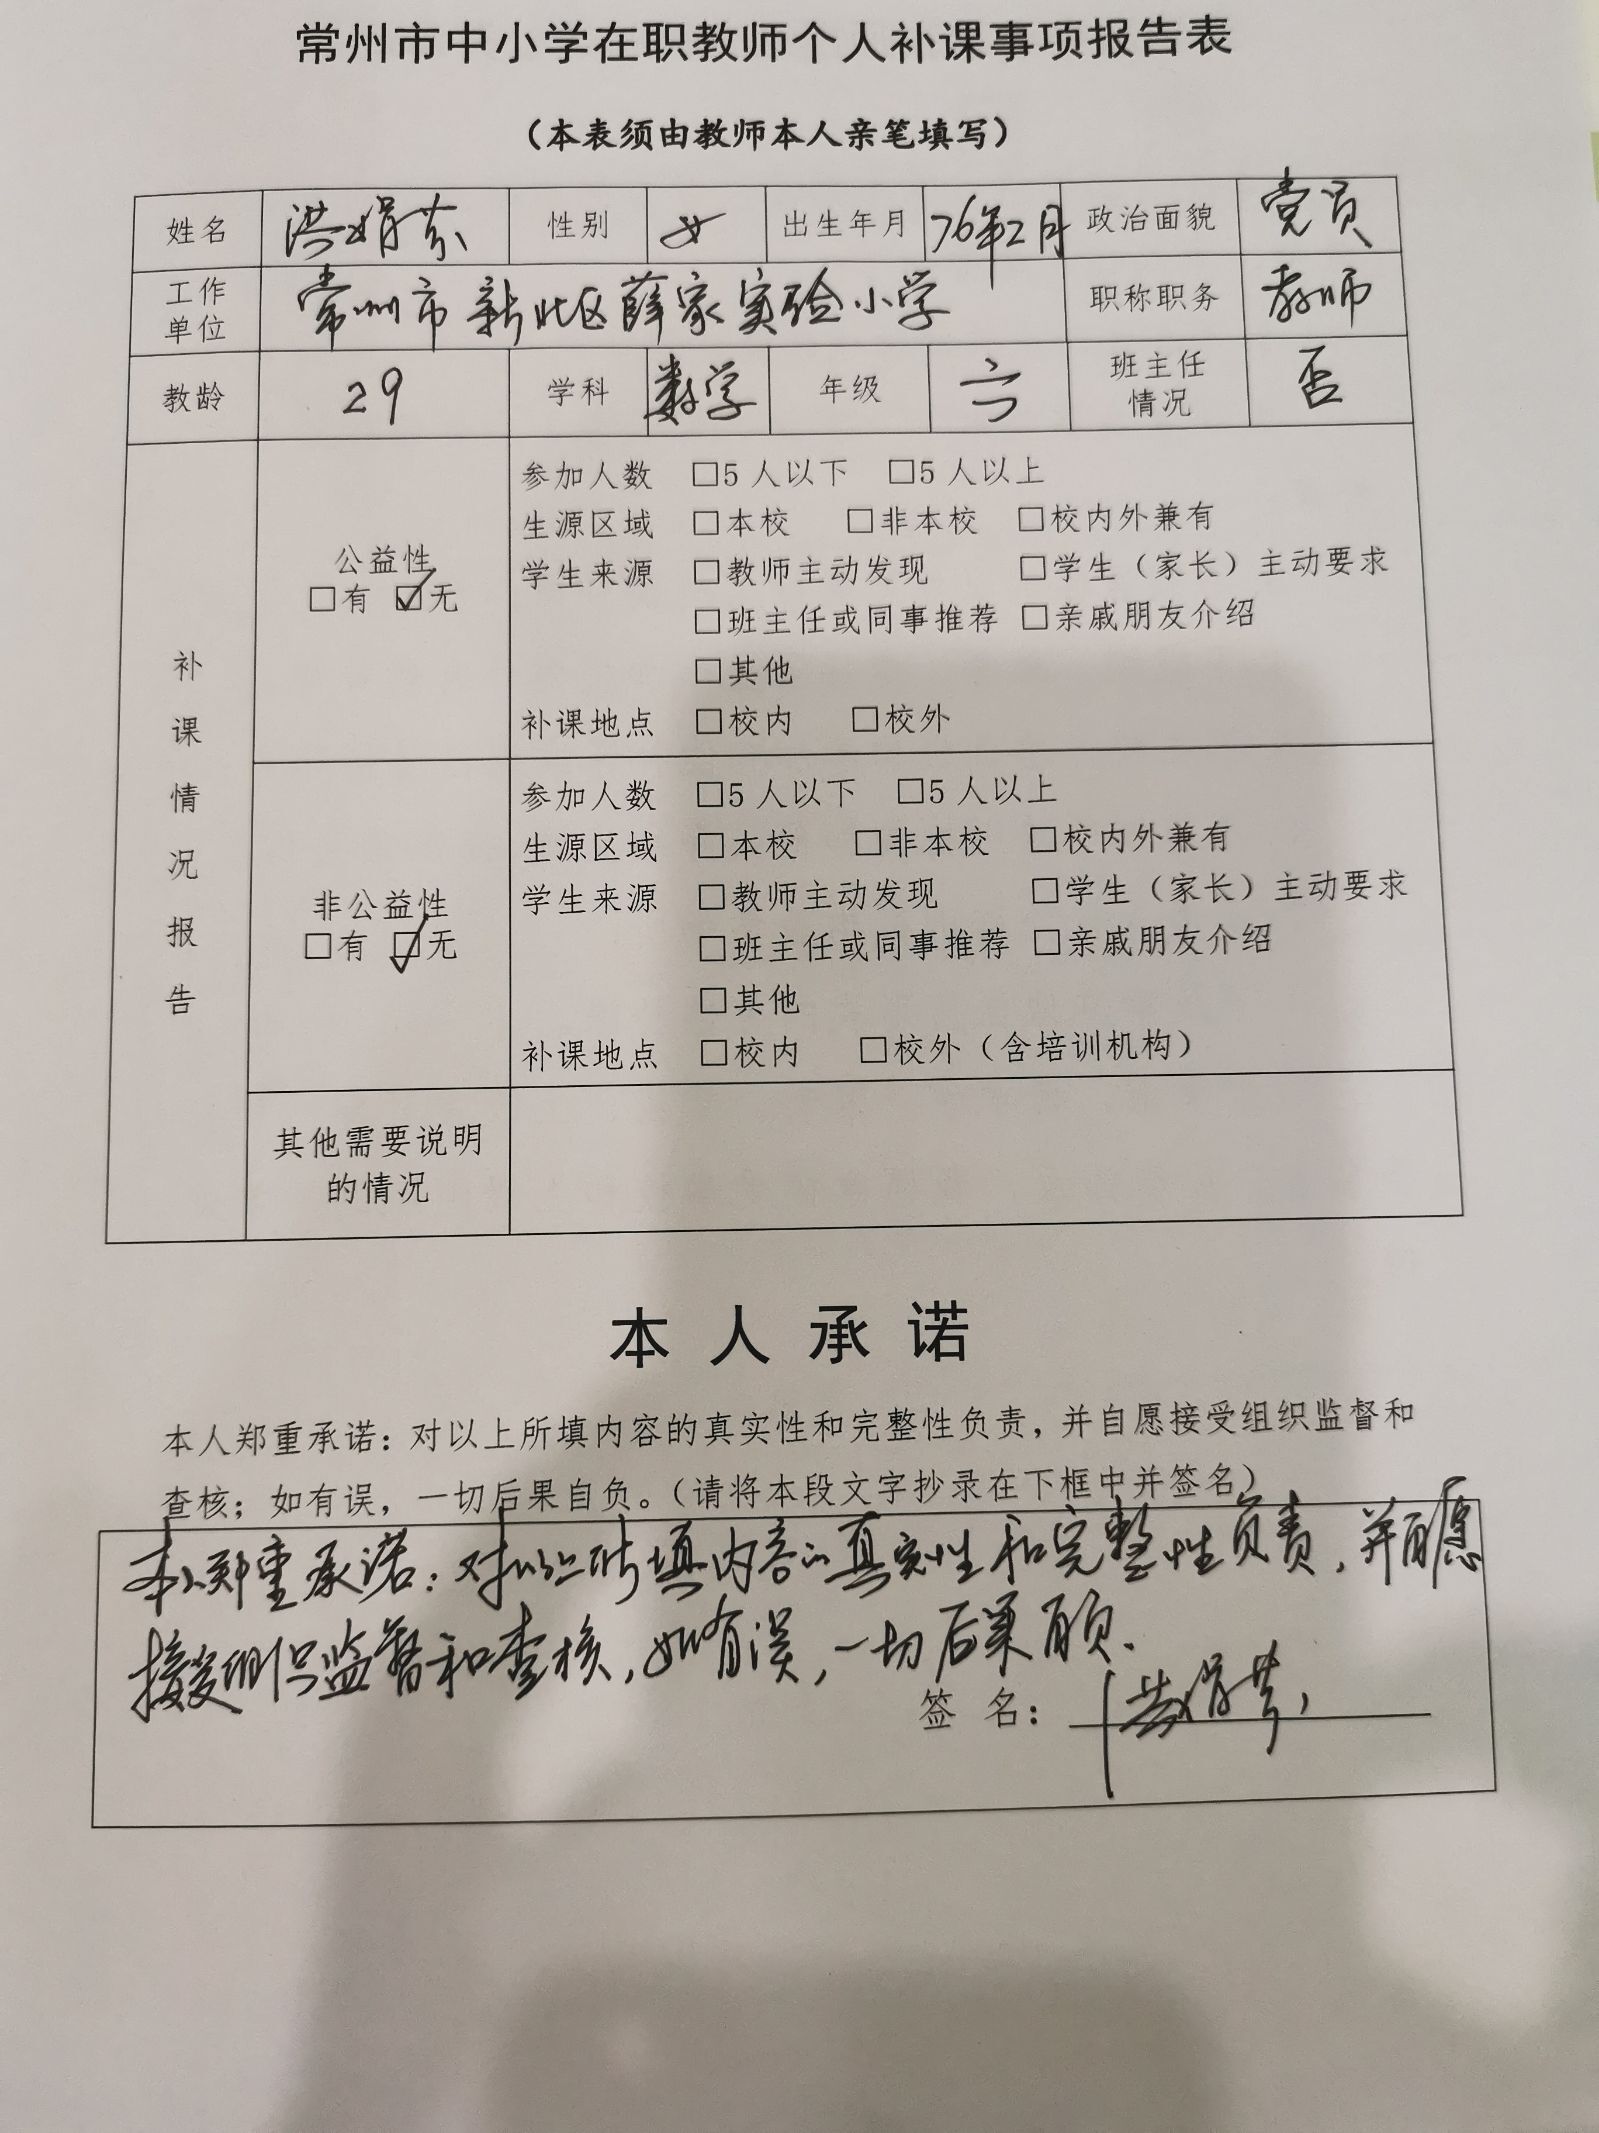 常州市中小学在职教师个人补课事项报告表
（本表须由教师本人亲笔填写）
姓名 洪娟芬 性别 女 出生年月 76年2月 政治面貌 党员
工作单位 常州市新北区薛家实验小学 职称职务 教师
教龄 29 学科 数学 年级 六 班主任情况 否
补课情况报告
公益性
□有 ☑无
参加人数 □5人以下 □5人以上
生源区域 □本校 □非本校 □校内外兼有
学生来源 □教师主动发现 □学生（家长）主动要求
□班主任或同事推荐 □亲戚朋友介绍
□其他
补课地点 □校内 □校外
非公益性
□有 ☑无
参加人数 □5人以下 □5人以上
生源区域 □本校 □非本校 □校内外兼有
学生来源 □教师主动发现 □学生（家长）主动要求
□班主任或同事推荐 □亲戚朋友介绍
□其他
补课地点 □校内 □校外（含培训机构）
其他需要说明
的情况
本人承诺
本人郑重承诺：对以上所填内容的真实性和完整性负责，并自愿接受组织监督和
查核；如有误，一切后果自负。（请将本段文字抄录在下框中并签名）
本人郑重承诺：对以上所填内容的真实性和完整性负责，并自愿
接受组织监督和查核，如有误，一切后果自负．
签 名： 洪娟芬